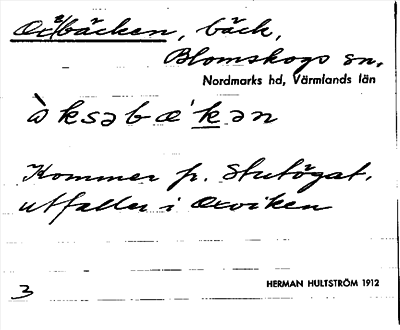 Ox²/bäcken, bäck,
Blomskogs sn,
Nordmarks hd, Värmlands län
ὰksəbæ'kən
Kommer fr. Stutögat,
utfaller i Oxviken
HERMAN HULTSTRÖM 1912
3